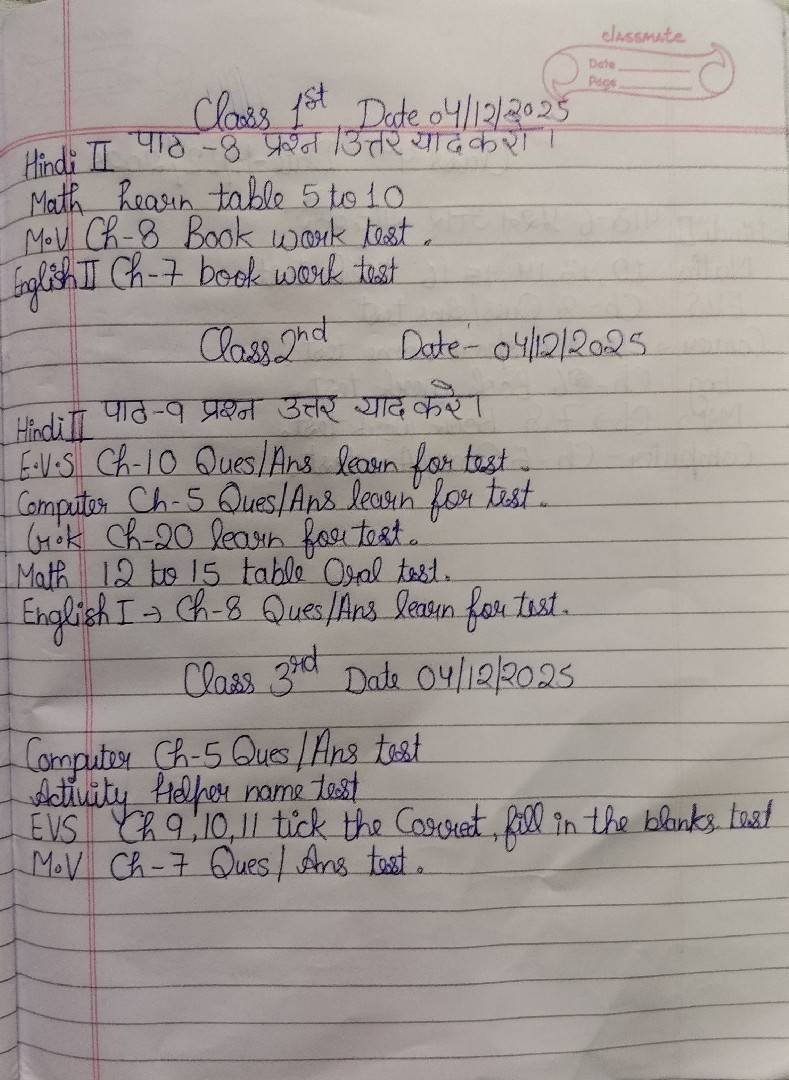 classmate
Date
Page
Class 1st Date 04/12/2025
Hindi II पाठ -8 प्रश्न /उत्तर याद करो।
Math Learn table 5 to 10
M.V Ch-8 Book work test.
English II Ch-7 book work test
Class 2nd Date- 04/12/2025
Hindi II पाठ-9 प्रश्न उत्तर याद करे।
E.V.S Ch-10 Ques/Ans learn for test.
Computer Ch-5 Ques/Ans learn for test.
G.K Ch-20 learn for test.
Math 12 to 15 table Oral test.
English I → Ch-8 Ques/Ans learn for test.
Class 3rd Date 04/12/2025
Computer Ch-5 Ques/Ans test
Activity Helper name test
EVS Ch 9,10,11 tick the Correct, fill in the blanks test
M.V Ch-7 Ques/Ans test.